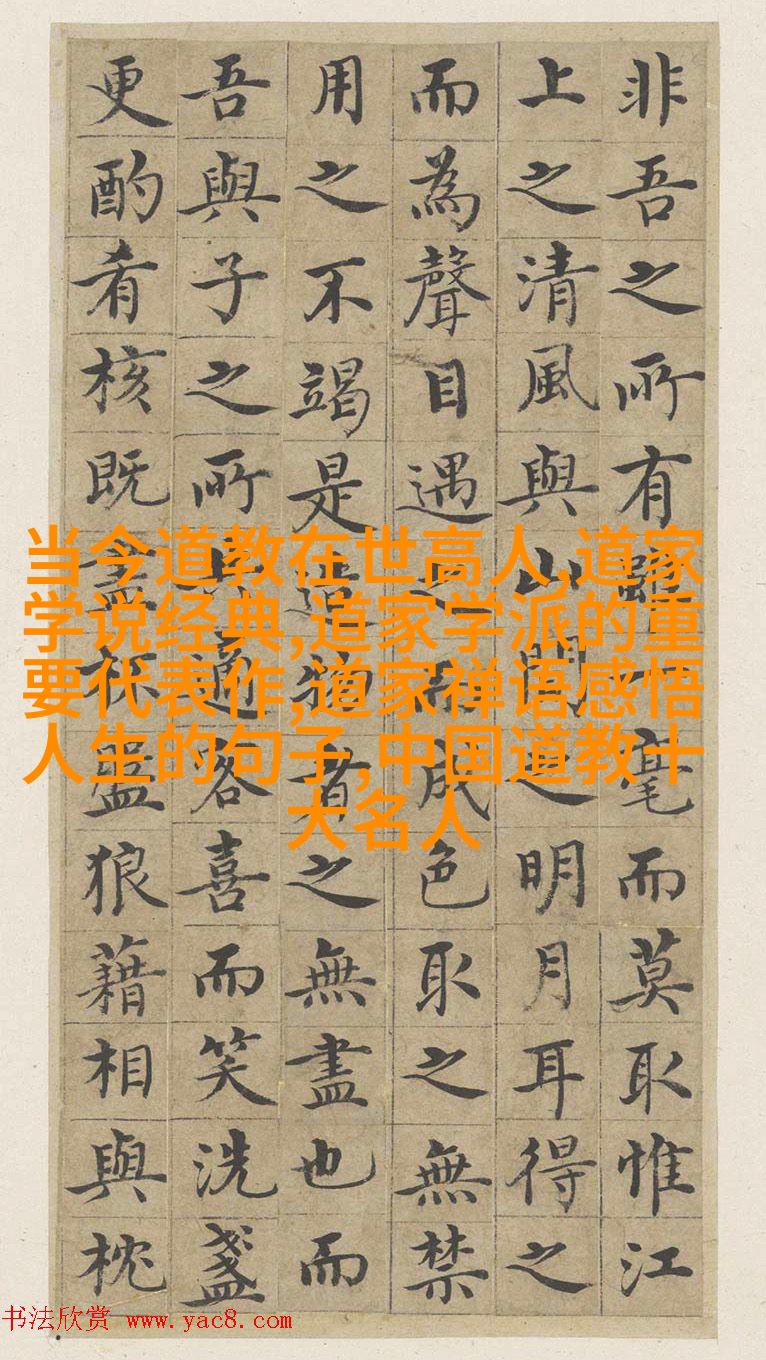 非吾之所有雖一毫而莫取惟江
上之清風與山間之明月耳得之
而為聲目遇之而成色取之無禁
用之不竭是造物者之無盡也而
吾與子之所共適客喜而笑洗盞
更酌肴核既盡杯盤狼藉相與枕
当今道教在世高人,道家
学说经典,道家学派的重
要代表作,道家禅语感悟
人生的句子,中国道教十
大名人
书法欣赏 www.yac8.com